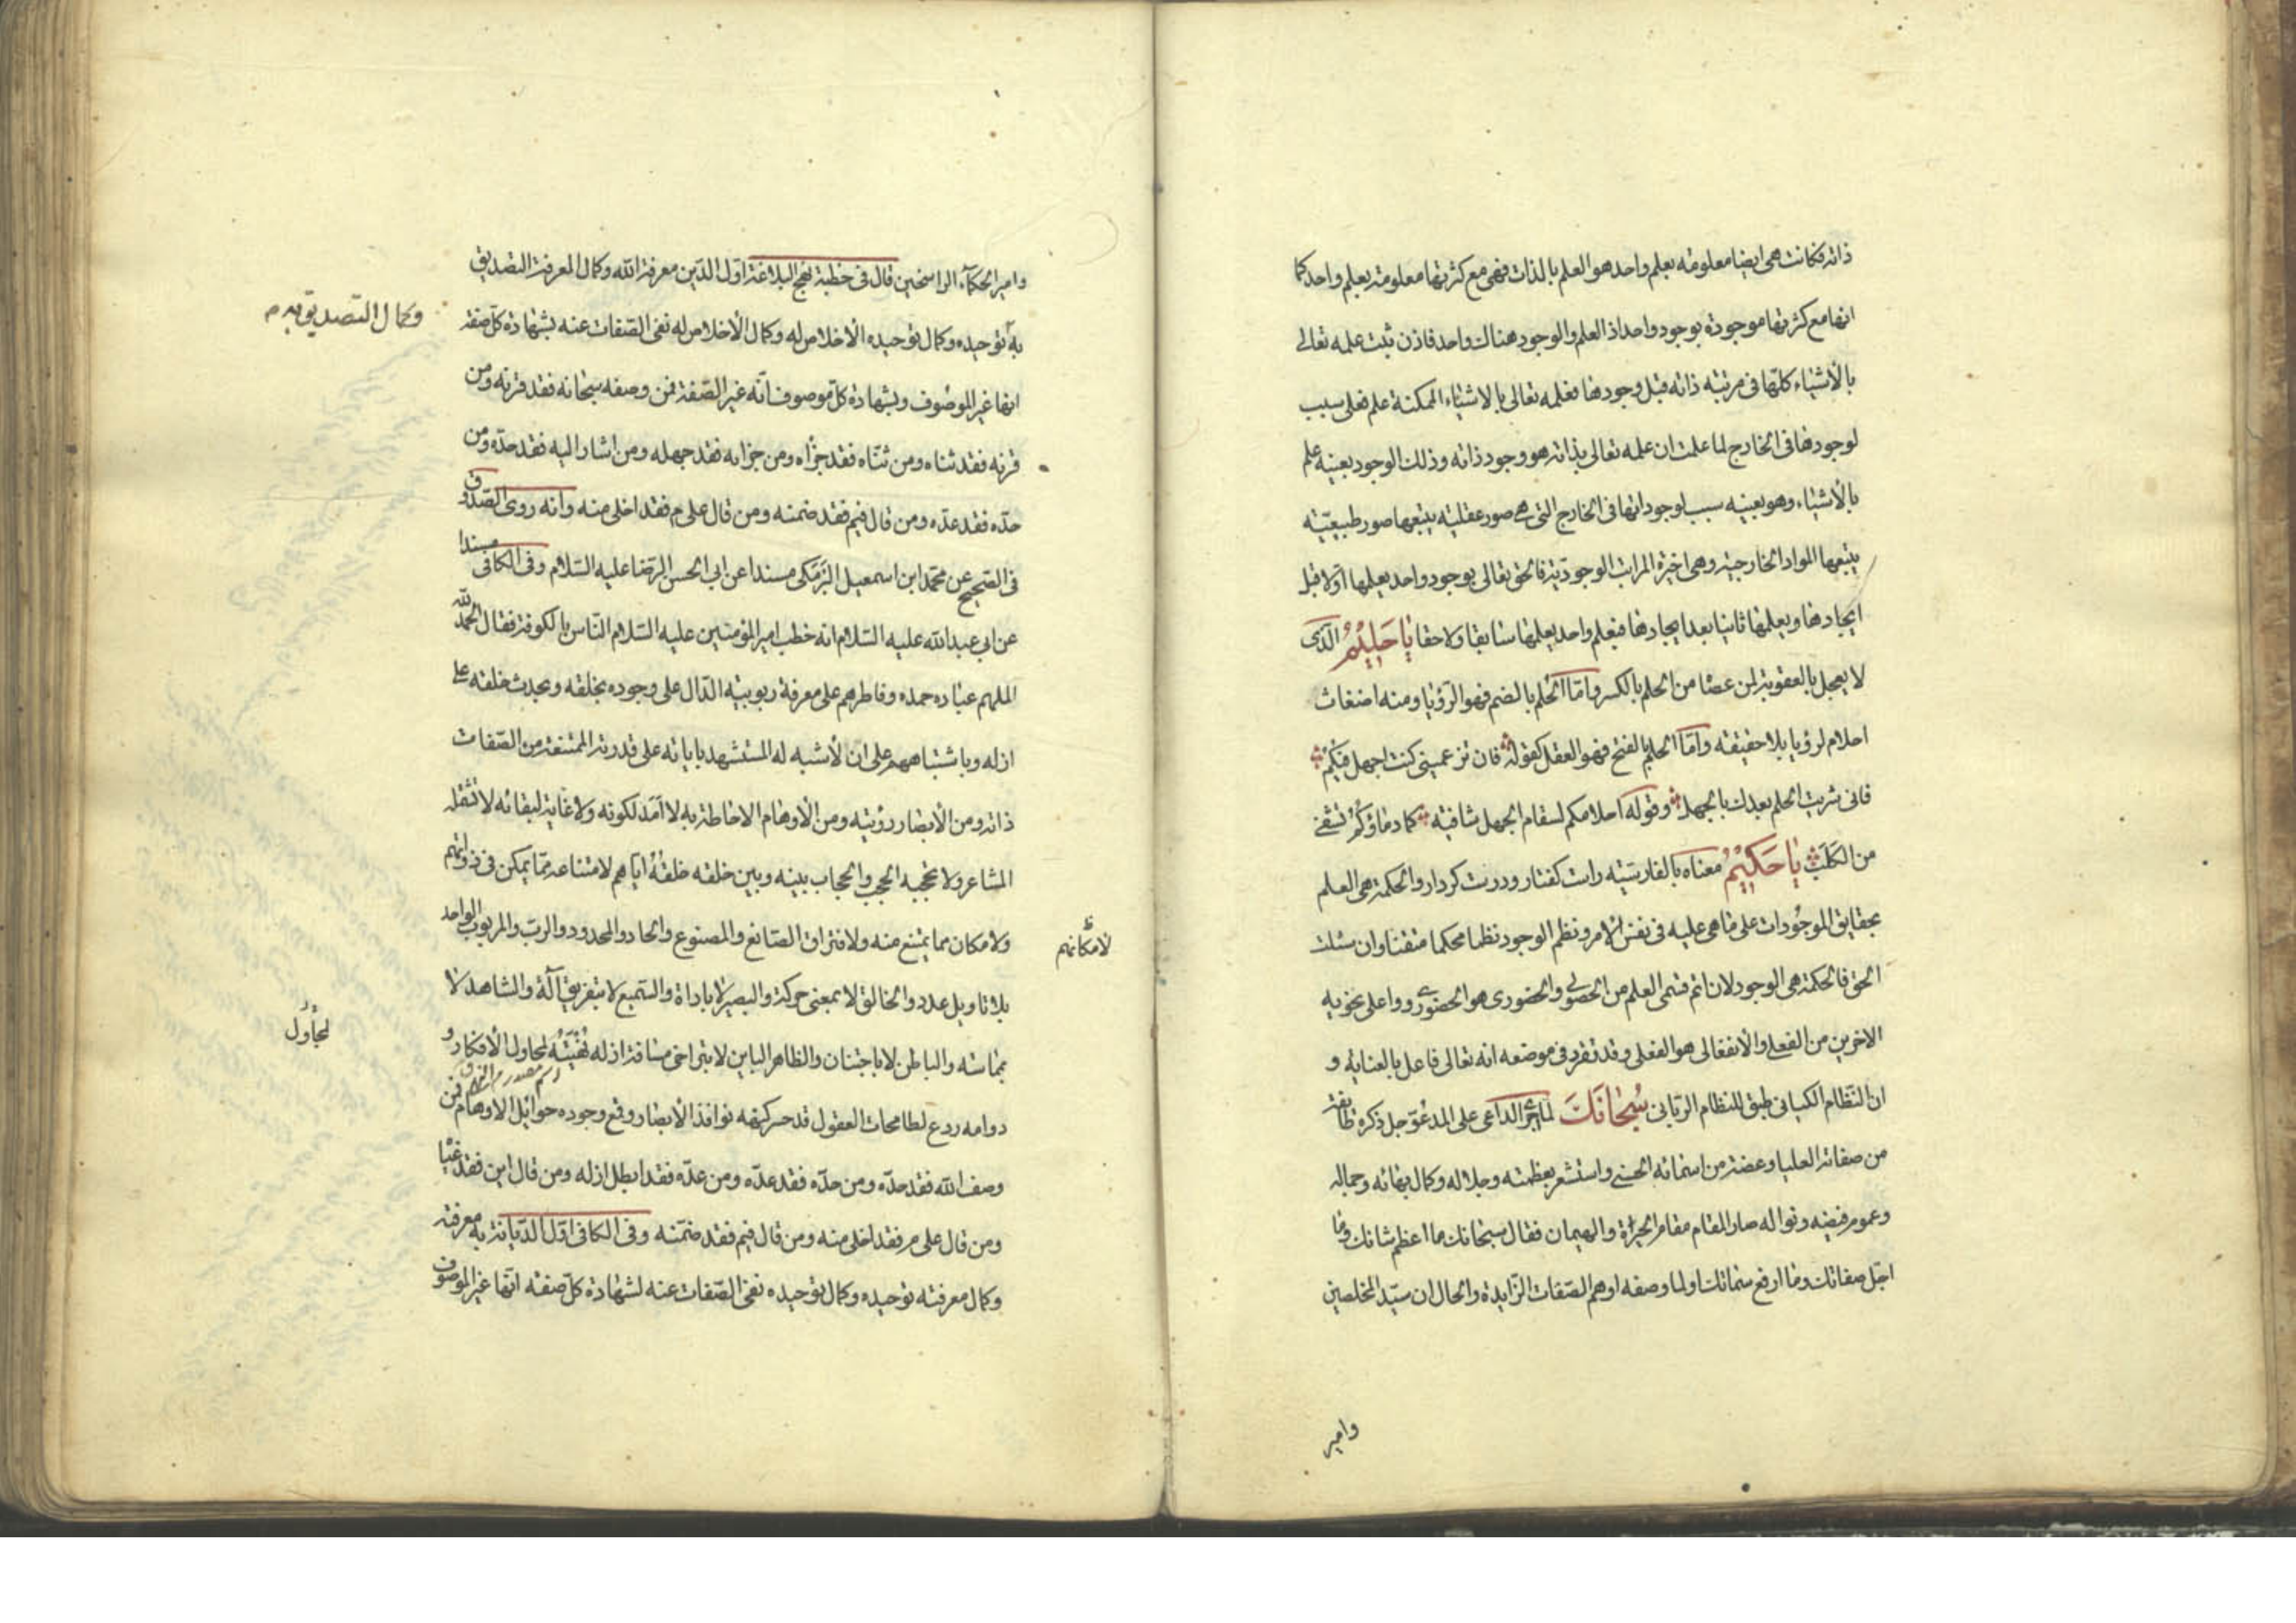 ذاته فكانت هى ايضا معلومته بعلم واحد هو العلم بالذات فهى مع كثرتها معلومة بعلم واحد كما
انها مع كثرتها موجودة بوجود واحد اذ العلم والوجود هناك واحد فاذن ثبت علمه تعالى
بالأشياء كلّها فى مرتبته ذاته قبل وجودها فعلمه تعالى بالاشياء الممكنة علم فعلى سبب
لوجودها فى الخارج لما علمت ان علمه تعالى بذاته هو وجود ذاته وذلك الوجود بعينه علم
بالأشياء وهو بعينه سبب لوجوداتها فى الخارج التى هى صور عقلية يتبعها صور طبيعيّة
يتبعها المواد الخارجية وهى اخيرة المراتب الوجوديّة فالحق تعالى بوجود واحد يعلمها اولا قبل
ايجادها ويعلمها ثانيا بعد ايجادها فبعلم واحد يعلمها سابقا ولاحقا يا حَليمُ الّذى
لا يعجل بالعقوبة لمن عصا من الحلم بالكسر وامّا الحُلم بالضم فهو الرّؤيا ومنه اضغاث
احلام لرؤيا بلا حقيقته وامّا الحلم بالفتح فهو العقل كقوله فان تزعمينى كنت اجهل فيكمُ
فانى شريت الحلم بعدك بالجهل وقوله احلامكم لسقام الجهل شافيه كما دماؤكُمُ تشفى
من الكَلَبِ يا حَكيمُ معناه بالفارسيّته راست كفتار ودرست كردار والحكمة هى العلم
بحقايق الموجُودات على ما هى عليه فى نفس الأمر ونظم الوجود نظما محكما متقنا وان سئلت
الحق فالحكمة هى الوجود لان اتم قسمى العلم من الحصولى والحضورى هو الحضورى وواعلى نحويه
الاخرين من الفعلى والأنفعالى هو الفعلى وقد تقرر فى موضعه انه تعالى فاعل بالعنايه و
ان النّظام الكيانى طبق للنظام الربّانى سُبحانَكَ لما اجرى الداعى على المدعوّ جل ذكره طايفة
من صفاته العليا وعضة من اسمائه الحسنى واستشعر بعظمته وجلاله وكمال بهائه وجماله
وعموم فيضه ونواله صار المقام مقام الحيرة والهيمان فقال سبحانك ما اعظم شانك وما
اجّل صفاتك وما ارفع سماتك اولما وصفه اوهم الصّفات الزّايدة والحال ان سيّد المخلصين
وامير
وامير الحكمآء الراسخين قال فى خطبة نهج البلاغة اوّل الدّين معرفة الله وكمال المعرفة التصديق
وكمال التّصديق به م
به توحيده وكمال توحيده الأخلاص له وكمال الأخلاص له نفى الصّفات عنه بشهادة كلّ صفة
انها غير الموصُوف وبشهادة كلّ موصوف انّه غير الصّفة فمن وصفه سبحانه فقد قرنه ومن
قرنه فقد ثناه ومن ثنّاه فقد جزّاه ومن جزاه فقد جهله ومن اشار اليه فقد حدّه ومن
حدّه فقد عدّه ومن قال فيم فقد ضمنه ومن قال على م فقد اخلى منه وانه روى الصّدوق
فى الصّحيح عن محمّد ابن اسمعيل البَرْمَكى مسندا عن ابى الحسن الرّضا عليه السّلام وفى الكافى مسندا
عن ابى عبد الله عليه السّلام انه خطب امير المؤمنين عليه السّلام النّاس بالكوفة فقال الحمد لله
الملهم عباده حمده وفاطرهم على معرفة ربوبيته الدّال على وجوده بخلقه وبحدث خلقه على
ازله وباشتباههم على ان لأشبه له المستشهد باياته على قدرته الممتنعة من الصّفات
ذاته ومن الأبصار رؤيته ومن الأوهام الاحاطة به لا اَمَد لكونه ولا غاية لبقائه لا تشمله
المشاعر ولا تحجبه الحجب والحجاب بينه وبين خلقه خلقُهُ ايّاهم لامتناعه ممّا يمكن فى ذواتهم
لأمكانهم
ولامكان مما يمتنع منه ولافتراق الصّانع والمصنوع والحاد والمحدود والرب والمربوب الواحد
بلا تاويل عدد والخالق لا بمعنى حركة والبصير لا باداة والسّميع لا بتفريق آلة والشاهد لا
بمماسّة والباطن لا باجتنان والظاهر الباين لا بتراخى مسافة ازله نُهْيَتُهُ لمحاول الأفكار و
لمجاول
اسم مصدر م
دوامه ردع لطامحات العقول قد حسر كنهه نوافذ الأبصار وقمع وجوده جوائل الاوهام فمن
وصف الله فقد حدّه ومن حدّه فقد عدّه ومن عدّه فقد ابطل ازله ومن قال اين فقد غيّا
ومن قال على م فقد اخلى منه ومن قال فيم فقد ضمّنه وفى الكافى اوّل الدّيانة به معرفته
وكمال معرفته توحيده وكمال توحيده نفى الصّفات عنه لشهادة كلّ صفة انّها غير الموصوف